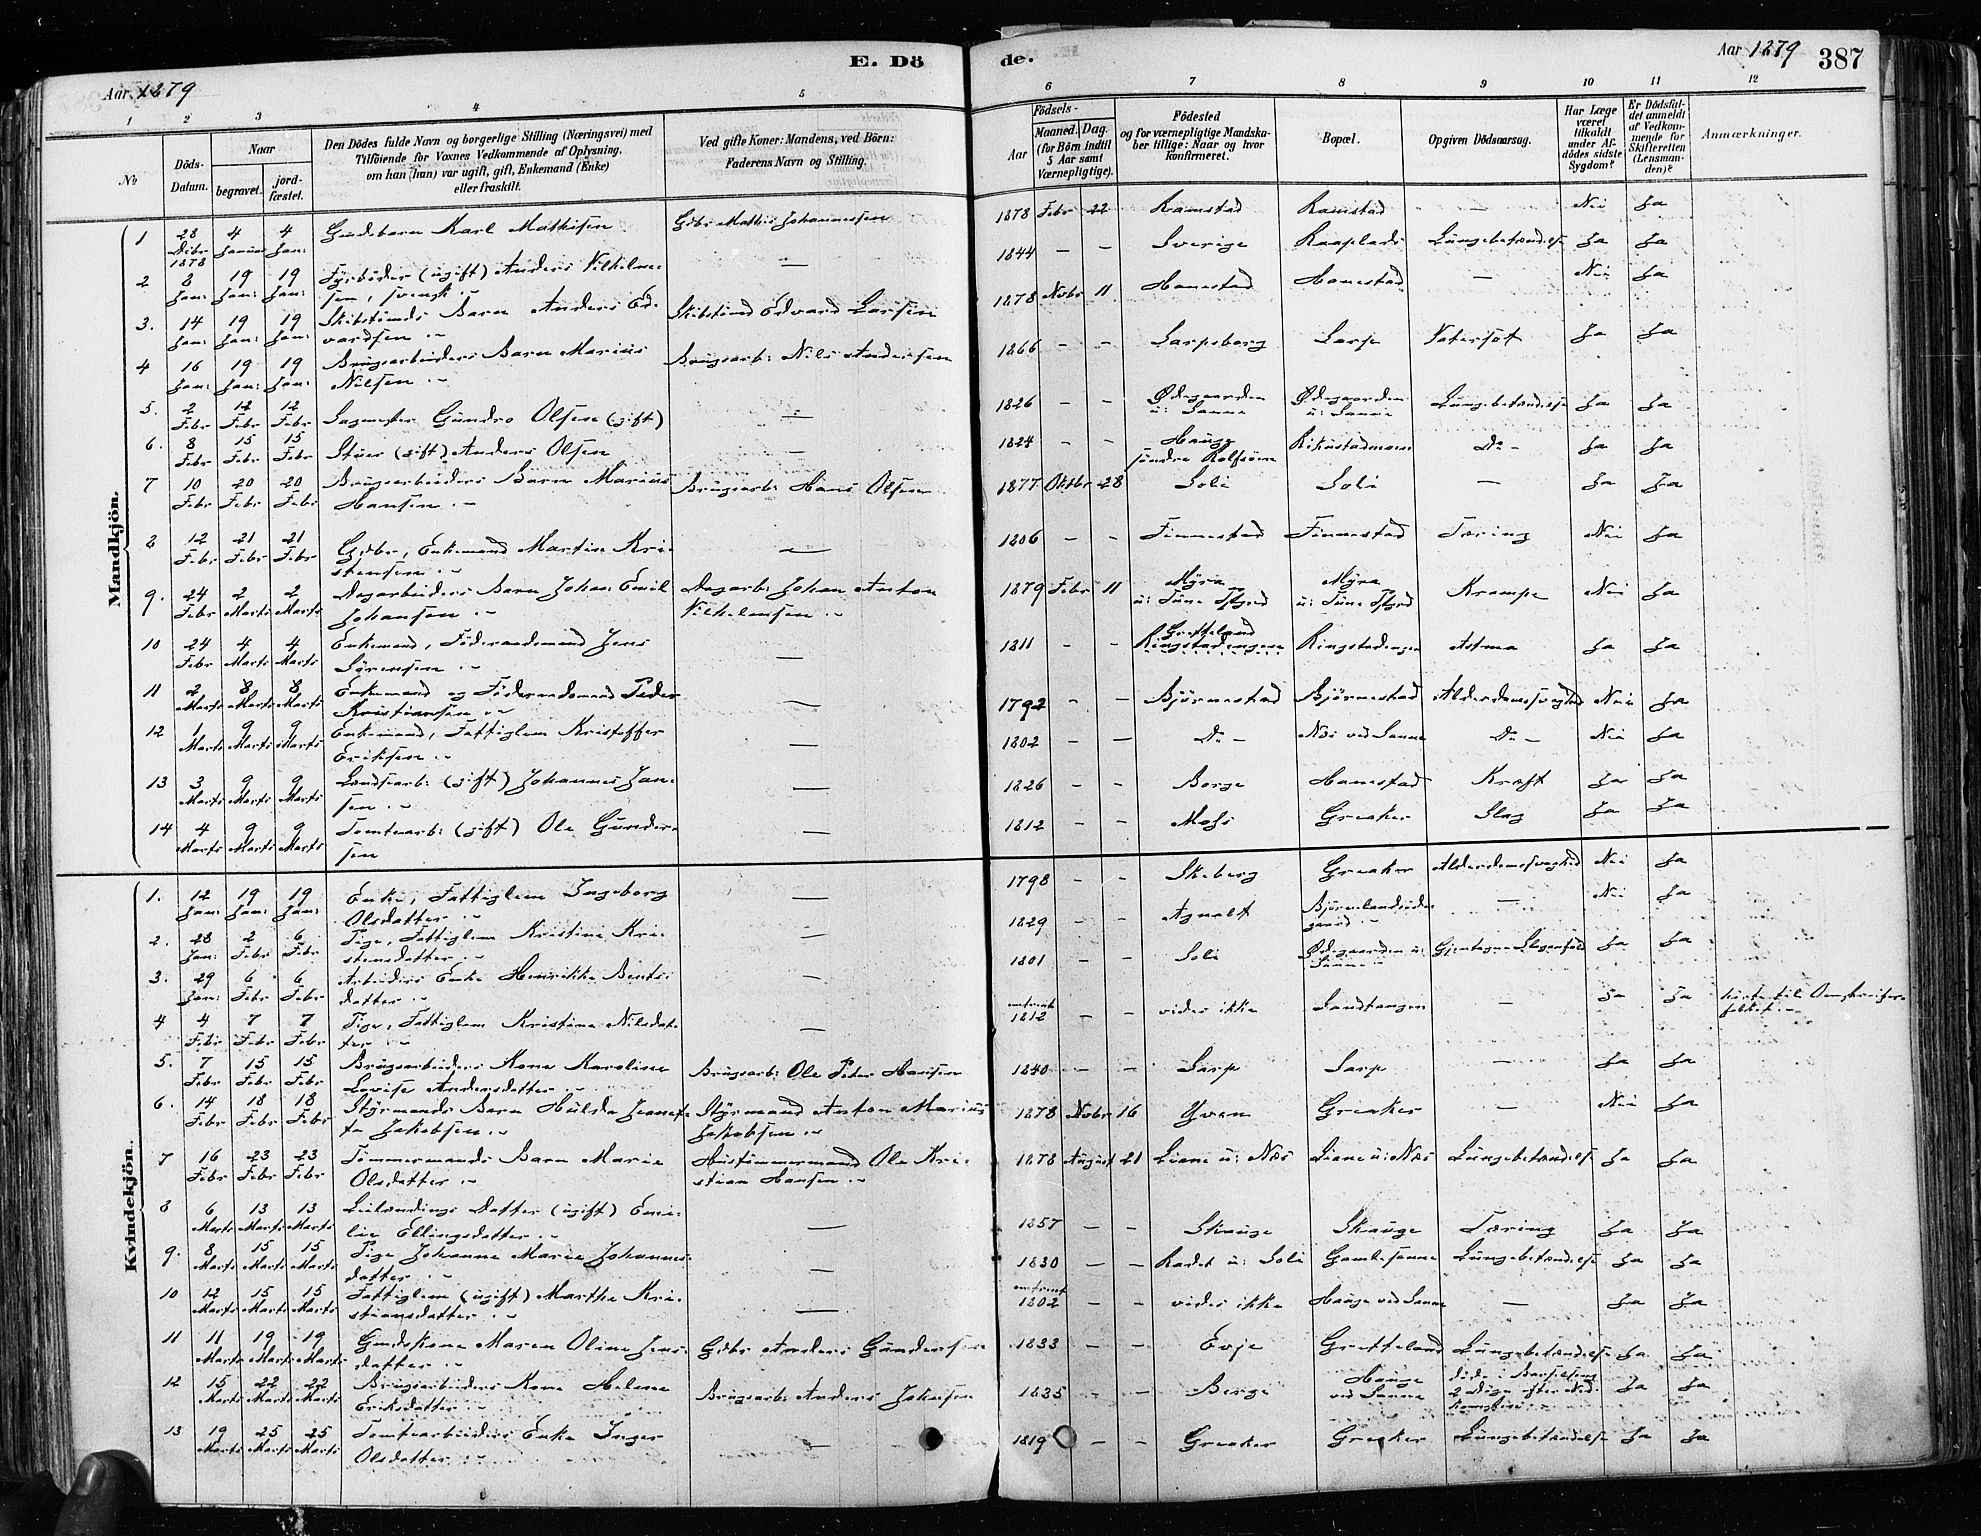 Aar 1879
E. Dö
de.
Aar 1879
387
1 2 3 4 5 6 7 8 9 10 11 12
No
Döds-Datum.
Naar
begravet.
jord-fæstet.
Den Dödes fulde Navn og borgerlige Stilling (Næringsvei) med
Tilföiende for Voxnes Vedkommende af Oplysning,
om han (hun) var ugift, gift, Enkemand (Enke)
eller fraskilt.
Ved gifte Koner: Mandens, ved Börn:
Faderens Navn og Stilling.
Födsels-
Aar
Maaned. Dag.
(for Börn indtil
5 Aar samt
Værnepligtige).
Födested
og for værnepligtige Mandska-
ber tillige: Naar og hvor
konfirmeret.
Bopæl.
Opgiven Dödsaarsag.
Har Læge
været
tilkaldt
under Af-
dödes sidste
Sygdom?
Er Dödsfal-
det anmeldt
af Vedkom-
mende for
Skifteretten
(Lensman-
den)?
Anmærkninger.
Mandkjön.
1 28 Debr 1878 4 Januar 4 Jan: Gudsbarn Karl Mathisen Gdbr Mathis Johannesen 1878 Febr 22 Ramstad Ramstad — Nei Ja
2 8 Jan: 19 Jan: 19 Jan: Fyrböder (ugift) Anders Vilhelm-
sen, svensk — 1844 — — Sverige Lüngebetændelse Ja Ja
3. 14 Jan: 19 Jan: 19 Jan: Skibstömds Barn Anders Ed-
vardsen Skibstömd Edvard Larsen 1878 Nvbr 11 Hanestad Hanestad — Nei Ja
4 16 Jan: 19 Jan: 19 Jan: Brugsarbeiders Barn Marius
Nilsen Brugsarb: Nils Andersen 1866 — — Sarpsborg Sarp Vatersot Ja Ja
5. 2 Febr 12 Febr 12 Febr Sagmester Gundro Olsen (gift) — 1826 — — Ödegaarden
u: Sanne Ödegaarden
u: Sanne Lüngebetændelse Ja Ja
6. 8 Febr 15 Febr 15 Febr Stuer (gift) Anders Olsen — 1824 — — Hauge
söndre Rolfsöen Do — Ja Ja
7 10 Febr 20 Febr 20 Febr Brugsarbeiders Barn Marius
Hansen Brugsarb: Hans Olsen 1877 Oktbr 28 Soli Soli — Ja Ja
8 12 Febr 21 Febr 21 Febr Gdbr, Enkemand Martin Kri-
stensen — 1806 — — Finnestad Finnestad Tæring Nei Ja
9. 24 Febr 2 Marts 2 Marts Dagarbeiders Barn Johan Emil
Johansen Dagarb: Johan Anton
Vilhelmsen 1879 Febr 11 Myra
u: Tune Pstgrd Myra
u: Tune Pstgrd Krampe Nei Ja
10 24 Febr 4 Marts 4 Marts Enkemand, Föderaadsmand Jens
Sörensen — 1811 — — Gretteland
Ringstadengen Ringstadengen Astma Ja Ja
11 2 Marts 8 Marts 8 Marts Enkemand og Föderaadsmand Peder
Kristiansen — 1792 — — Björnestad Björnestad Alderdomssvaghed Nei Ja
12 1 Marts 9 Marts 9 Marts Enkemand, Fattiglem Kristoffer
Eriksen — 1802 — — Do — Næs ved Sanne Do — Nei Ja
13 3 Marts 9 Marts 9 Marts Landsarb: (gift) Johannes Jan-
sen — 1826 — — Borge Hanestad Kræft Ja Ja
14 4 Marts 9 Marts 9 Marts Tomtearb: (gift) Ole Gunder-
sen — 1812 — — Moss Greaker Slag Ja Ja
Kvindekjön.
1. 12 Jan: 19 Jan: 19 Jan: Enke, Fattiglem Ingeborg
Olsdatter — 1798 — — Skeberg Greaker Alderdomssvaghed Nei Ja
2. 28 Jan: 2 Febr 6 Febr Pige, Fattiglem Kristine Kri-
stensdatter — 1829 — — Agnalt Björnlandsöde-
gaard — Nei Ja
3. 29 Jan: 6 Febr 6 Febr Arbeiders Enke Henrikke Bents-
datter — 1801 — — Soli Ödegaarden u:
Sanne Gjentagne Slaganfald Ja Ja
4 4 Febr 7 Febr 7 Febr Pige, Fattiglem Kristine Nilsdat-
ter — omtrent
1812 — — vides ikke Sandtangen — Ja Ja hörte til Omstreifer-
folket.
5. 7 Febr 15 Febr 15 Febr Brugsarbeiders Kone Karoline
Lovise Andersdatter Brugsarb: Ole Peter Hansen 1840 — — Sarp Sarp — Ja Ja
6. 14 Febr 18 Febr 18 Febr Styrmands Barn Hulda Jenset-
te Jakobsen Styrmand Anton Marius
Jakobsen 1878 Nvbr 16 Yven Greaker — Nei Ja
7 16 Febr 23 Febr 23 Febr Tömmermands Barn Marie
Olsdatter Hustömmermand Ole Kri-
stian Hansen 1878 August 21 Liane u: Næs Liane u: Næs Lüngebetændelse Ja Ja
8 6 Marts 13 Marts 13 Marts Leilændings Datter (ugift) Emi-
lie Ellingsdatter — 1857 — — Skauge Skauge Tæring Ja Ja
9. 8 Marts 15 Marts 15 Marts Pige Johanne Marie Johannes-
datter — 1830 — — Radet u: Soli Gamlesanne Lüngebetændelse Ja Ja
10 12 Marts 15 Marts 15 Marts Fattiglem (ugift) Marthe Kri-
stiansdatter — omtrent
1802 — — vides ikke Hauge ved Sanne — Ja Ja
11 11 Marts 19 Marts 19 Marts Gmdskone Maren Oline Jens-
datter Gdbr Anders Gundersen 1833 — — Evje Gretteland Lüngebetændelse Ja Ja
12 15 Marts 22 Marts 22 Marts Brugsarbeiders Kone Helene
Eriksdatter Brugsarb: Anders Johnsen 1835 — — Borge Hauge
ved Sanne döde i Barselseng
2 Dage efter Ned-
komsten Ja Ja
13 19 Marts 25 Marts 25 Marts Tomtearbeiders Enke Inger
Olsdatter — 1819 — — Greaker Greaker Lüngebetændelse Ja Ja